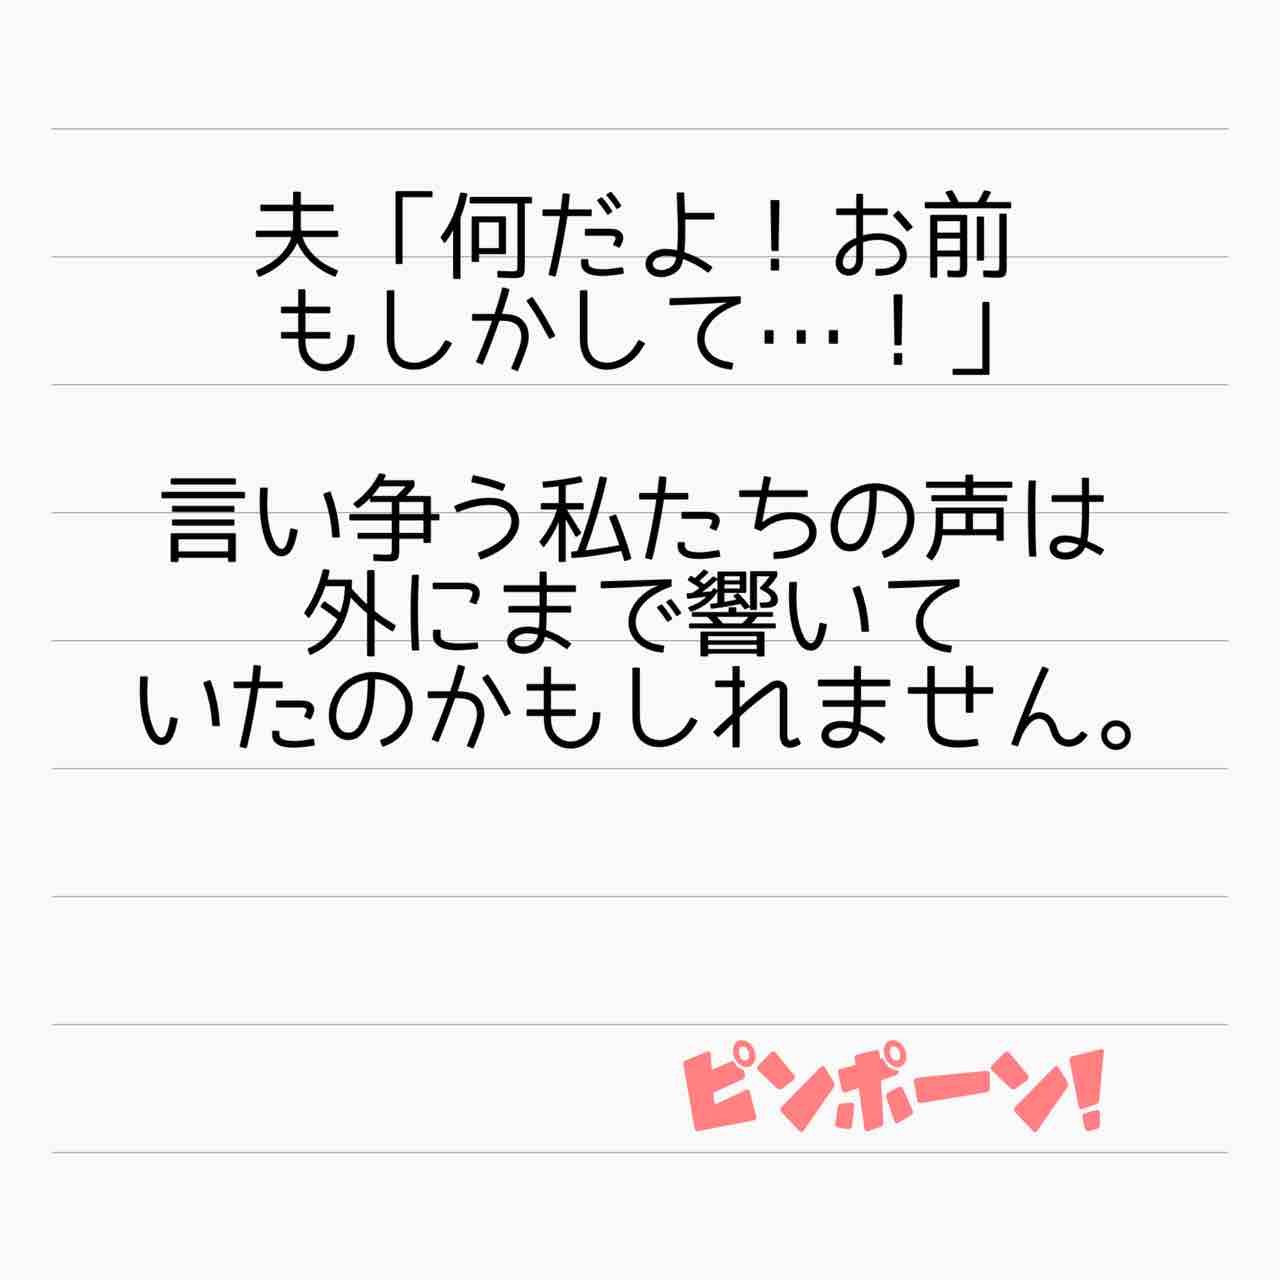 夫「何だよ！お前
もしかして…！」
言い争う私たちの声は
外にまで響いて
いたのかもしれません。
ピンポーン!